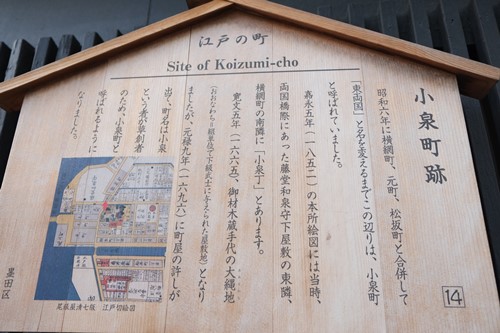 江戸の町
Site of Koizumi-cho
小泉町跡
昭和六年に横網町、元町、松坂町と合併して
「東両国」と名を変えるまでこの辺りは、小泉町
と呼ばれていました。
嘉永五年（一八五二）の本所絵図には当時、
両国橋際にあった藤堂和泉守下屋敷の東隣、
横網町の南隣に「小泉丁」とあります。
寛文五年（一六六五）、御材木蔵手代の大縄地
（おおなわち＝組単位で下級武士に与えられた屋敷地）となり
ましたが、元禄九年（一六九六）に町屋の許しが
当、町名は小泉
という者が草創者
のため、小泉町と
呼ばれるように
なりました。
尾張屋清七版 江戸切絵図
墨田区
14